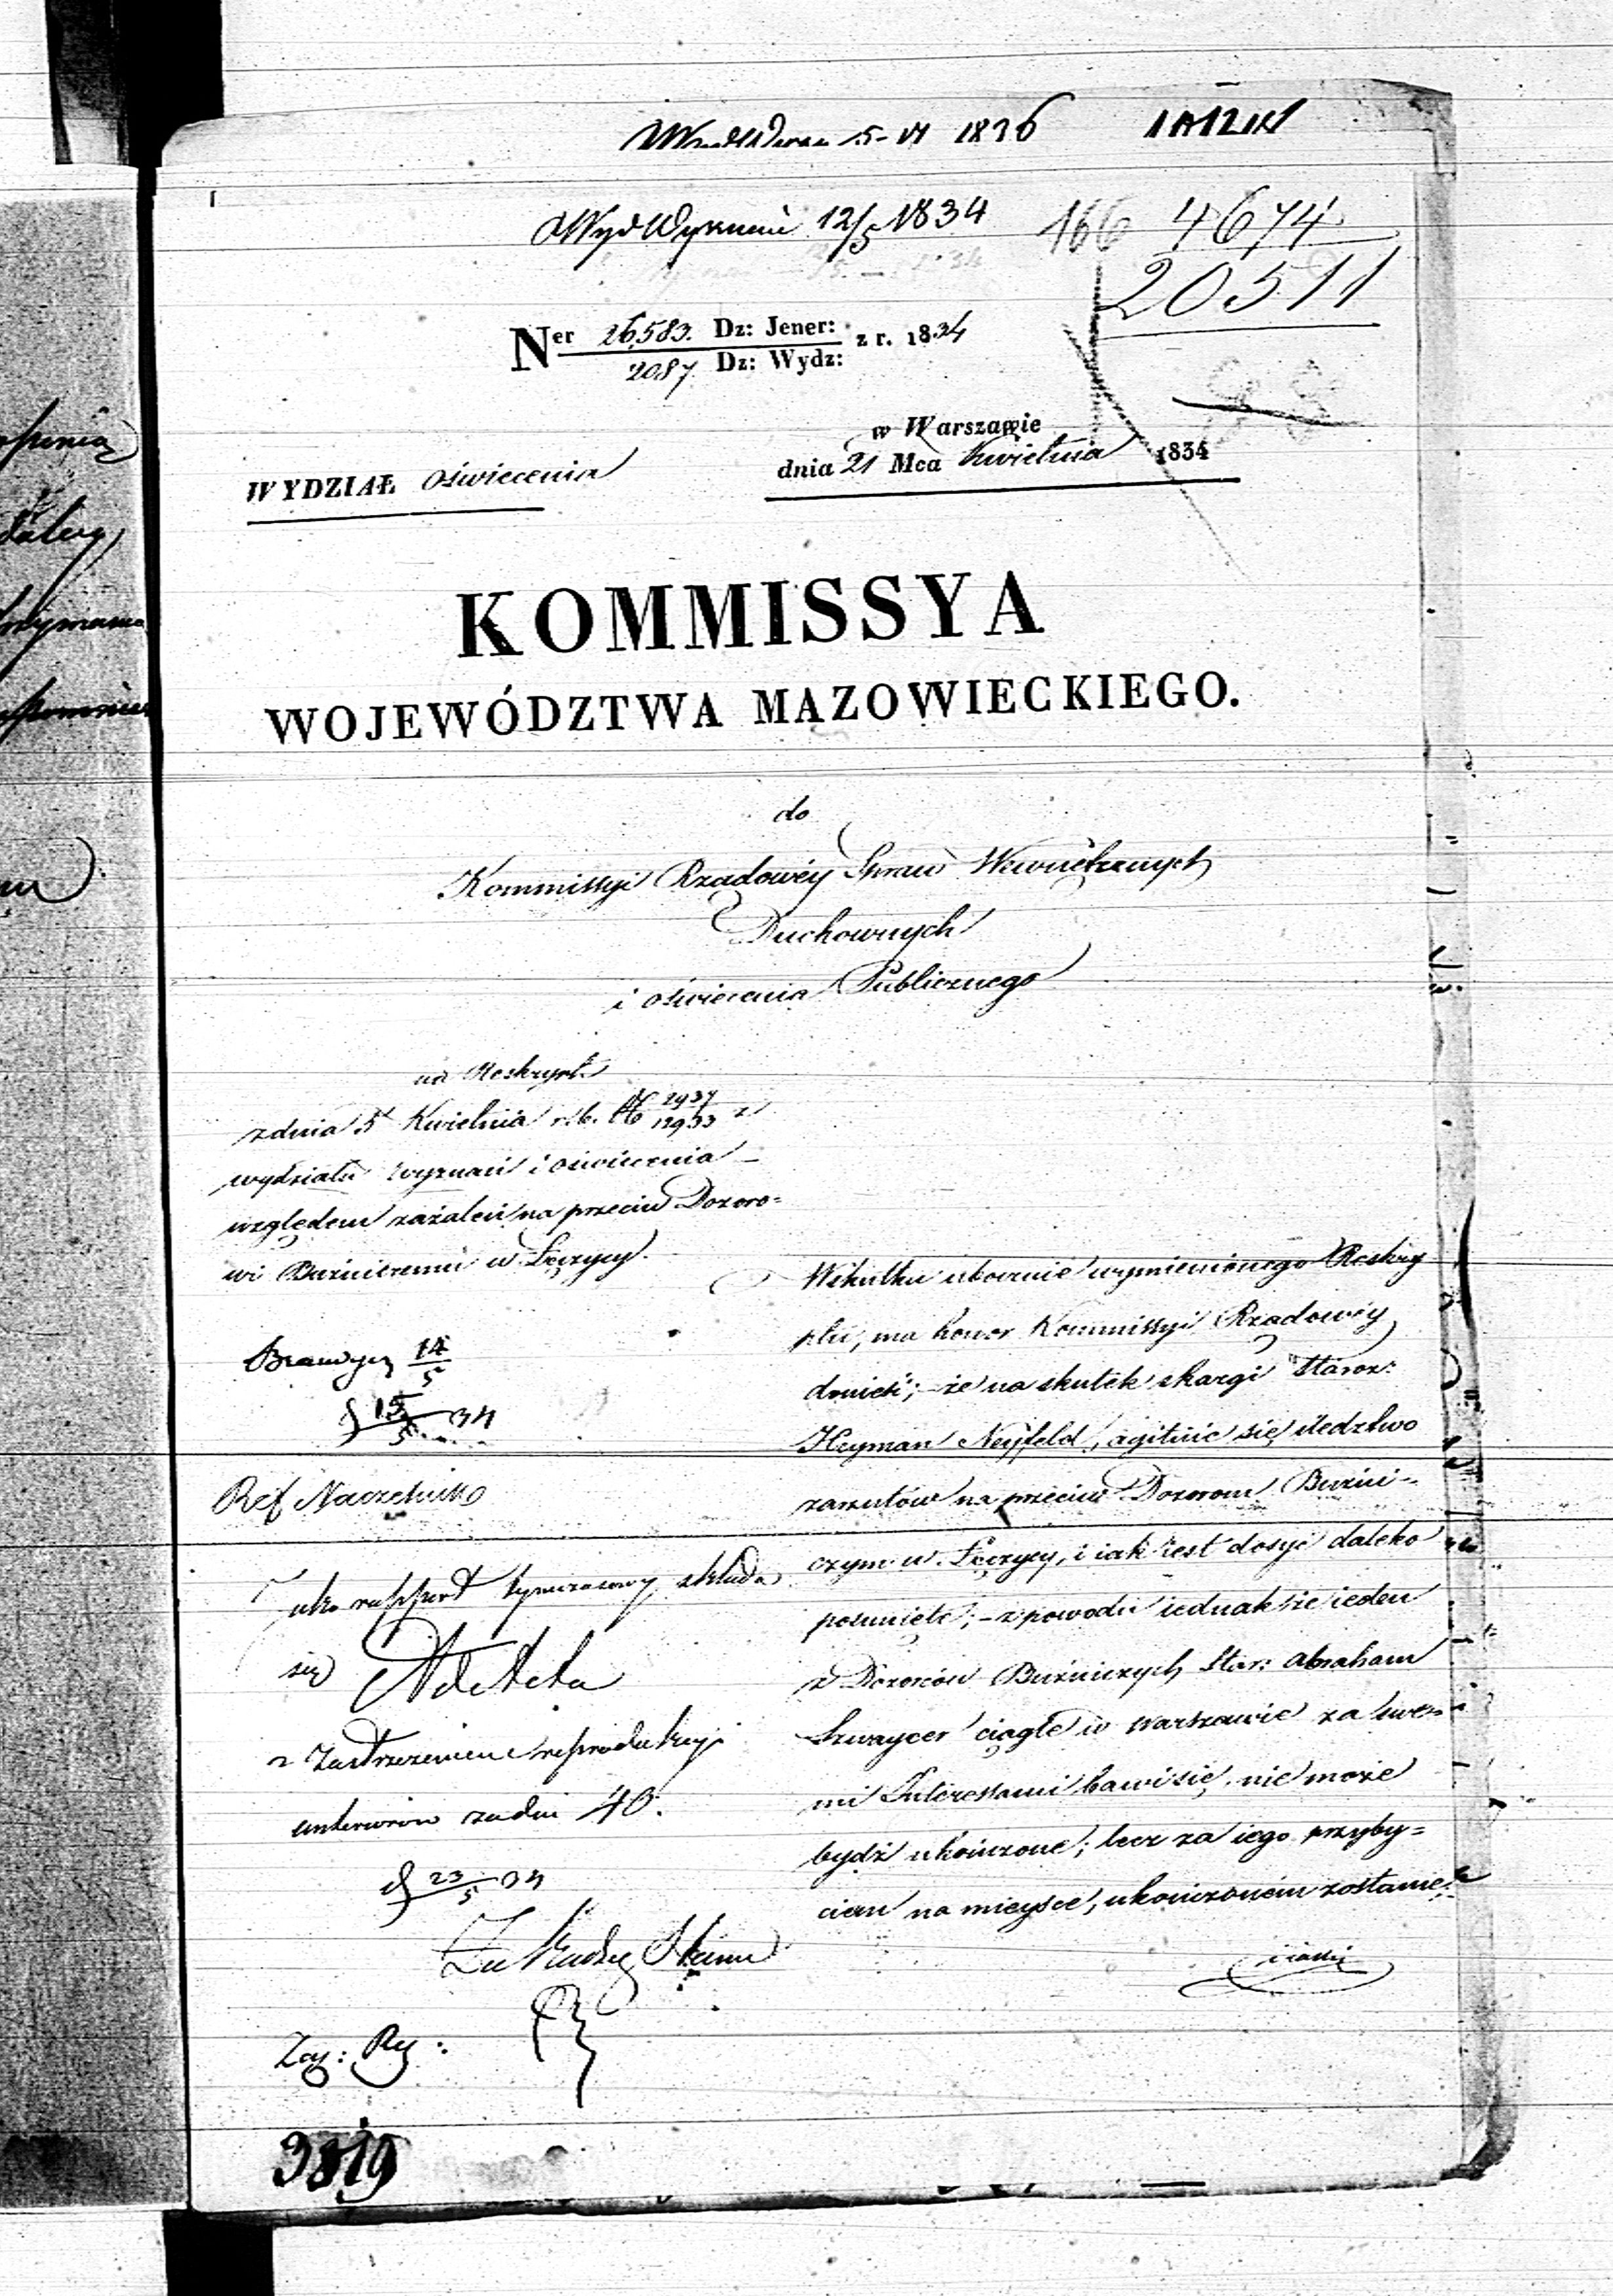 5 - VI 1836
Wyd Wyznań 12/5 1834
166 4674
20511
Ner 26,583. Dz: Jener: z r. 1834
2087 Dz: Wydz:
w Warszawie
WYDZIAŁ Oświecenia
dnia 21 Mca Kwietnia 1834
KOMMISSYA
WOJEWÓDZTWA MAZOWIECKIEGO.
do
Kommissyi Rządowéy Spraw Wewnętrznych
Duchownych
i oświecenia Publicznego
na Reskrypt
z dnia 5 Kwietnia r. b. N 2937 z
12933
wydziału wyznań i oświecenia
względem zażaleń na przeciw Dozoro=
wi Bużniczemu w Łęczycy.
Wskutku ubocznie wymienionego Reskry
ptu, ma honor Kommissyi Rządowéy
donieść; że na skutek skargi Staroz:
Heyman Neyfeld, agituie się śledztwo
zarzutów na przeciw Dozorom Bużni=
czym w Łęczycy, i iak iest dosyć daleko
posunięte; - z powodu iednak że ieden
z Dozorców Bużniczych Star: Abraham
Szwaycer ciągle w Warszawie za swe=
mi Interessami bawi się, nie może
bydź ukończone; lecz za iego przyby=
ciem na mieysce, ukończoném zostanie.
14
5
15 34
5
Ref Naczelnik
iako rapport tymczasowy składa
się
z Zastrzeżeniem reprodukcyi
za dni 40.
23 34
5
3819